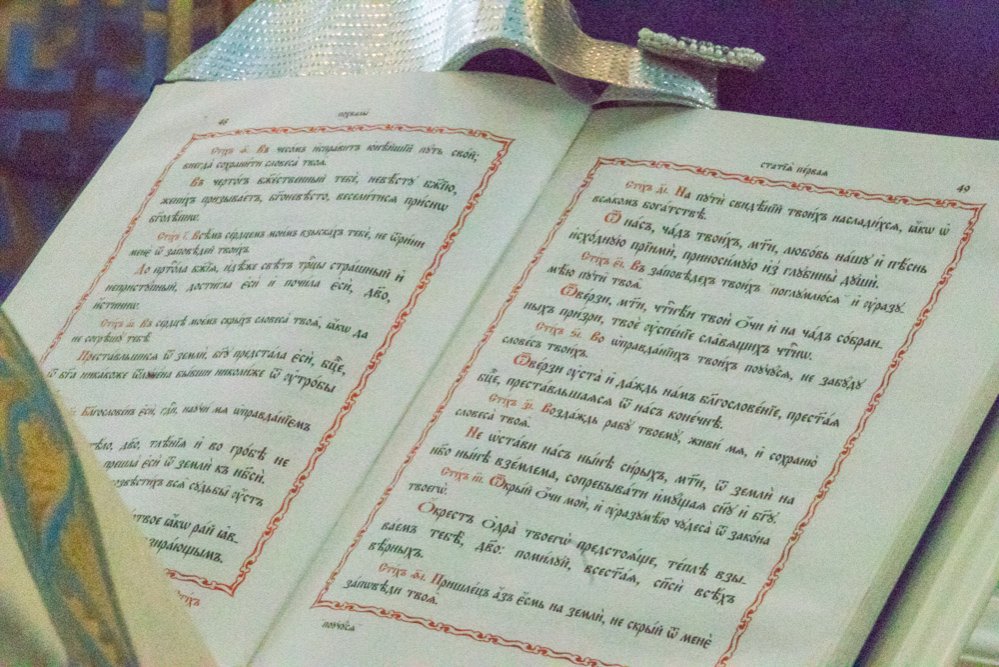 48
похвалы
Стіхъ ѳ҃. Въ чесомъ исправитъ юнѣйшій путь свой;
внегда сохранити словеса твоя.
Въ чертогъ бж҃ественный тебѐ, невѣсту бж҃їю,
женихъ призываетъ, бг҃оневѣсто, веселитися присно
бг҃олѣпнѡ.
Стіхъ і҃. Всѣмъ сердцемъ моимъ взыскахъ тебѐ, не ѿрини
менѐ ѿ заповѣдей твоихъ.
До прⷭ҇тола бж҃їя, идѣже свѣтъ трⷪ҇цы страшный и
неприступный, достигла єсѝ и почила єсѝ, дв҃о,
истиннѡ.
Стіхъ а҃і. Въ сердцѣ моемъ скрыхъ словеса твоя, ꙗ҆кѡ да
не согрѣшу тебѣ.
Преставльшися ѿ землѝ, бг҃у предстала єсѝ, бц҃е,
ѿ бг҃а никакоже ѿлꙋчена бывши николиже ѿ ᲂу҆тробы
Благословенъ єсѝ, гдⷭ҇и, научи мя ѡправданїємъ
тѣло, дв҃о, тлѣнїя и во гробѣ не
пришла єсѝ ѿ землѝ къ нб҃си.
возвѣстихъ вся судьбы ᲂу҆стъ
твое ꙗ҆кѡ рай ꙗ҆в-
зирающымъ.
Стіхъ
статїа̀ пе́рваѧ
49
Стіхъ д҃і. На путѝ свидѣнїй твоихъ насладихся, ꙗ҆́кѡ ѡ
всякомъ богатствѣ.
Ѿ насъ, чадъ твоихъ, мт҃и, любовь нашу и пѣснь
исходную прїими, приносимую из̾ глубины души.
Стіхъ є҃і. Въ заповѣдехъ твоихъ поглумлюся и ᲂу҆разу-
мѣю пути твоя.
Ѿверзи, мт҃и, чтⷭ҇нѣи твоѝ ѻчи и на чадъ собран-
ныхъ призри, твоѐ ᲂу҆спенїе славящихъ чтⷭ҇нѡ.
Стіхъ ѕ҃і. Во ѡправданїихъ твоихъ поучуся, не забуду
словесъ твоихъ.
Ѿверзи ᲂу҆ста и даждь намъ благословенїе, престⷭ҇ая
бц҃е, преставльшаяся ѿ насъ конечнѣ.
Стіхъ з҃і. Воздаждь рабу твоему, живи мя, и сохраню
словеса твоя.
Не ѡстави насъ нынѣ сирыхъ, мт҃и, ѿ землѝ на
нбо нынѣ вземлема, сопребывати имущая сн҃у и бг҃у.
Стіхъ и҃і. Ѿкрый ѻчи мои, и ᲂу҆разумѣю чудеса ѿ закона
твоегѡ.
Ѻкрестъ ѻдра твоегѡ предстояще, теплѣ взы-
ваемъ тебѣ, дв҃о: помилуй, всестⷭ҇ая, сп҃си всѣхъ
вѣрныхъ.
Стіхъ ѳ҃і. Пришлецъ азъ єсмь на землѝ, не скрый ѿ менѐ
заповѣди твоя.
поучуся